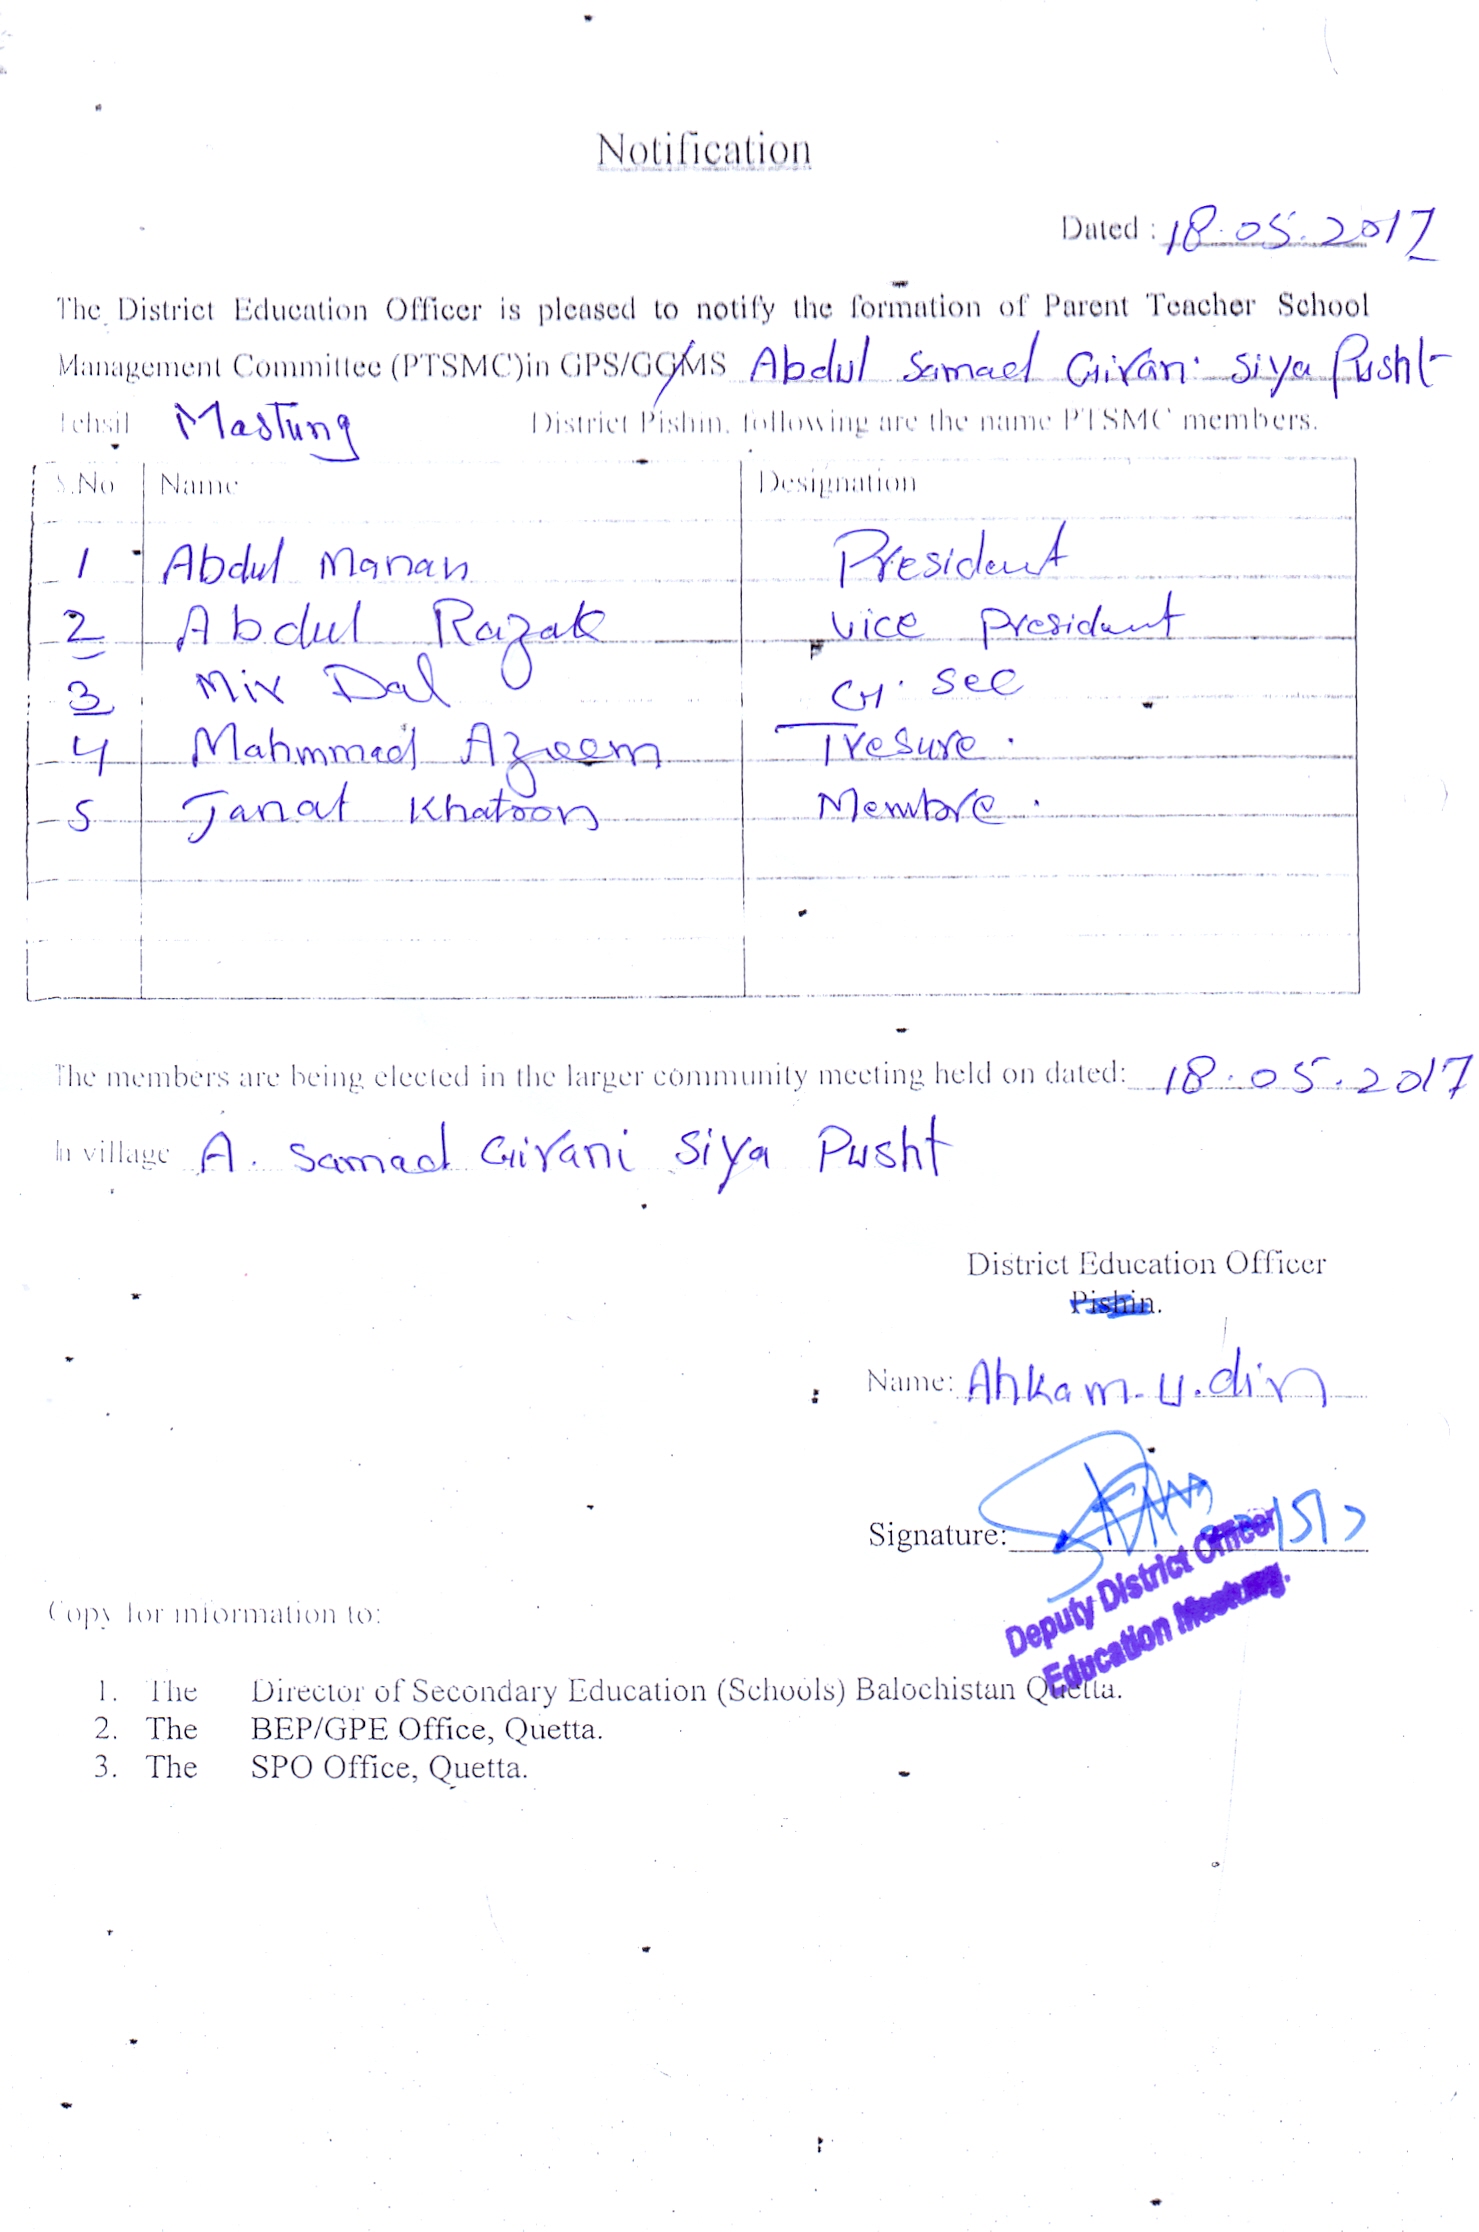 Notification
Dated : 18.05.2017
The District Education Officer is pleased to notify the formation of Parent Teacher School
Management Committee (PTSMC)in GPS/GGMS Abdul Samad Girani Siya Pusht
Tehsil Mastung District Pishin, following are the name PTSMC members.
S.No Name Designation
1 Abdul Manan President
2 Abdul Razak Vice president
3 Mir Dal G. Sec
4 Mahmmad Azeem Tresure.
5 Janat Khatoon Membre.
The members are being elected in the larger community meeting held on dated: 18.05.2017
In village A. Samad Girani Siya Pusht
District Education Officer
Pishin.
Name: Ahkam-u.din
Signature:
Deputy District Officer
Education Mastung.
Copy for information to:
1. The Director of Secondary Education (Schools) Balochistan Quetta.
2. The BEP/GPE Office, Quetta.
3. The SPO Office, Quetta.